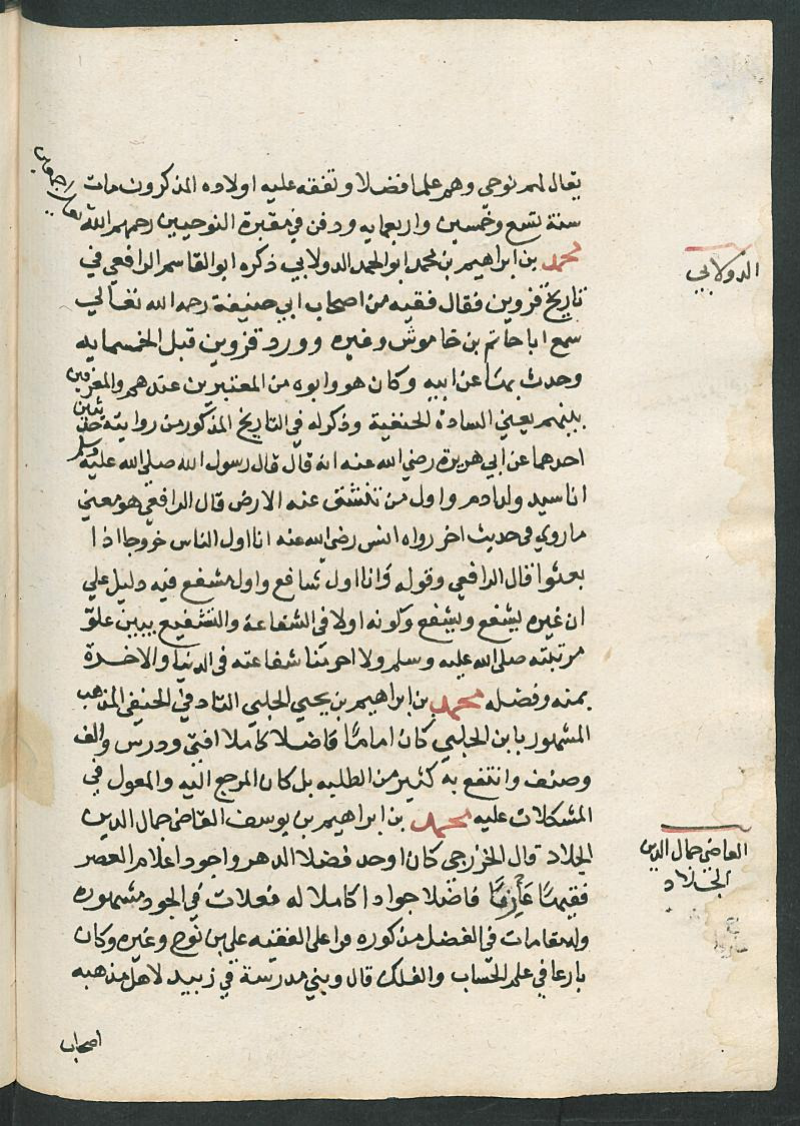 يقال لهم نوحي وهم علما فضلا وتفقه عليه اولاده المذكرون مات
سنة تسع وخمسين واربعمايه ودفن في مقبرة النوحيين رحمهم الله تعالى اجمعين
محمد بن ابراهيم بن محمد ابو المحمد الدولابي ذكره ابو القاسم الرافعي في
الدولابي
تاريخ قزوين فقال فقيه من اصحاب ابي حنيفة رحمه الله تعالي
سمع ابا حاتم بن خاموش وغيره وورد قزوين قبل الخمسمايه
وحدث بها عن ابيه وكان هو وابوه من المعتبرين عندهم والمعرفين
بينهم يعني السادة الحنفية وذكر له في التاريخ المذكور من روايته حديثين
احدهما عن ابي هريرة رضي الله عنه انه قال قال رسول الله صلى الله عليه وسلم
انا سيد ولد ادم واول من تنشق عنه الارض قال الرافعي هو معني
ما روي في حديث اخر رواه انس رضي الله عنه انا اول الناس خروجا اذا
بعثوا قال الرافعي وقوله وانا اول شافع واول مشفع فيه دليل علي
ان غيره يشفع ويشفع وكونه اولا في الشفاعة والتشفيع يبين علو
مرتبته صلى الله عليه وسلم ولا احرمنا شفاعته في الدنيا والاخرة
بمنه وفضله محمد بن ابراهيم بن يحيي الحلبي التادفي الحنفي المذهب
المشهور بابن الحلبي كان اماما فاضلا كاملا افتي ودرس والف
وصنف وانتفع به كثير من الطلبه بل كان المرجع اليه والمعول في
المشكلات عليه محمد بن ابراهيم بن يوسف القاضي جمال الدين
القاضي جمال الدين
الجلاد
الجلاد قال الخزرجي كان اوحد فضلا الدهر واجود اعلام العصر
فقيها عارفا فاضلا جوادا كاملا له فعلات في الجود مشهوره
وله مقامات في الفضل مذكوره قرا علي الفقيه علي بن نوح وغيره وكان
بارعا في علم الحساب والفلك قال وبني مدرسة في زبيد لاهل مذهبه
اصحاب